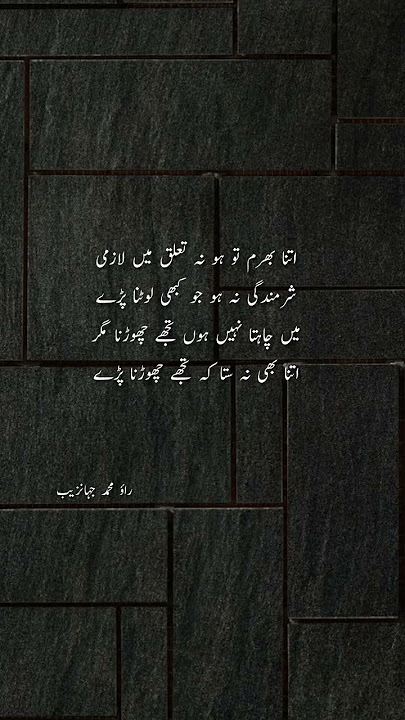 اتنا بھرم تو ہو نہ تعلق میں لازمی
شرمندگی نہ ہو جو کبھی لوٹنا پڑے
میں چاہتا نہیں ہوں تجھے چھوڑنا مگر
اتنا بھی نہ ستا کہ تجھے چھوڑنا پڑے
راؤ محمد جہانزیب